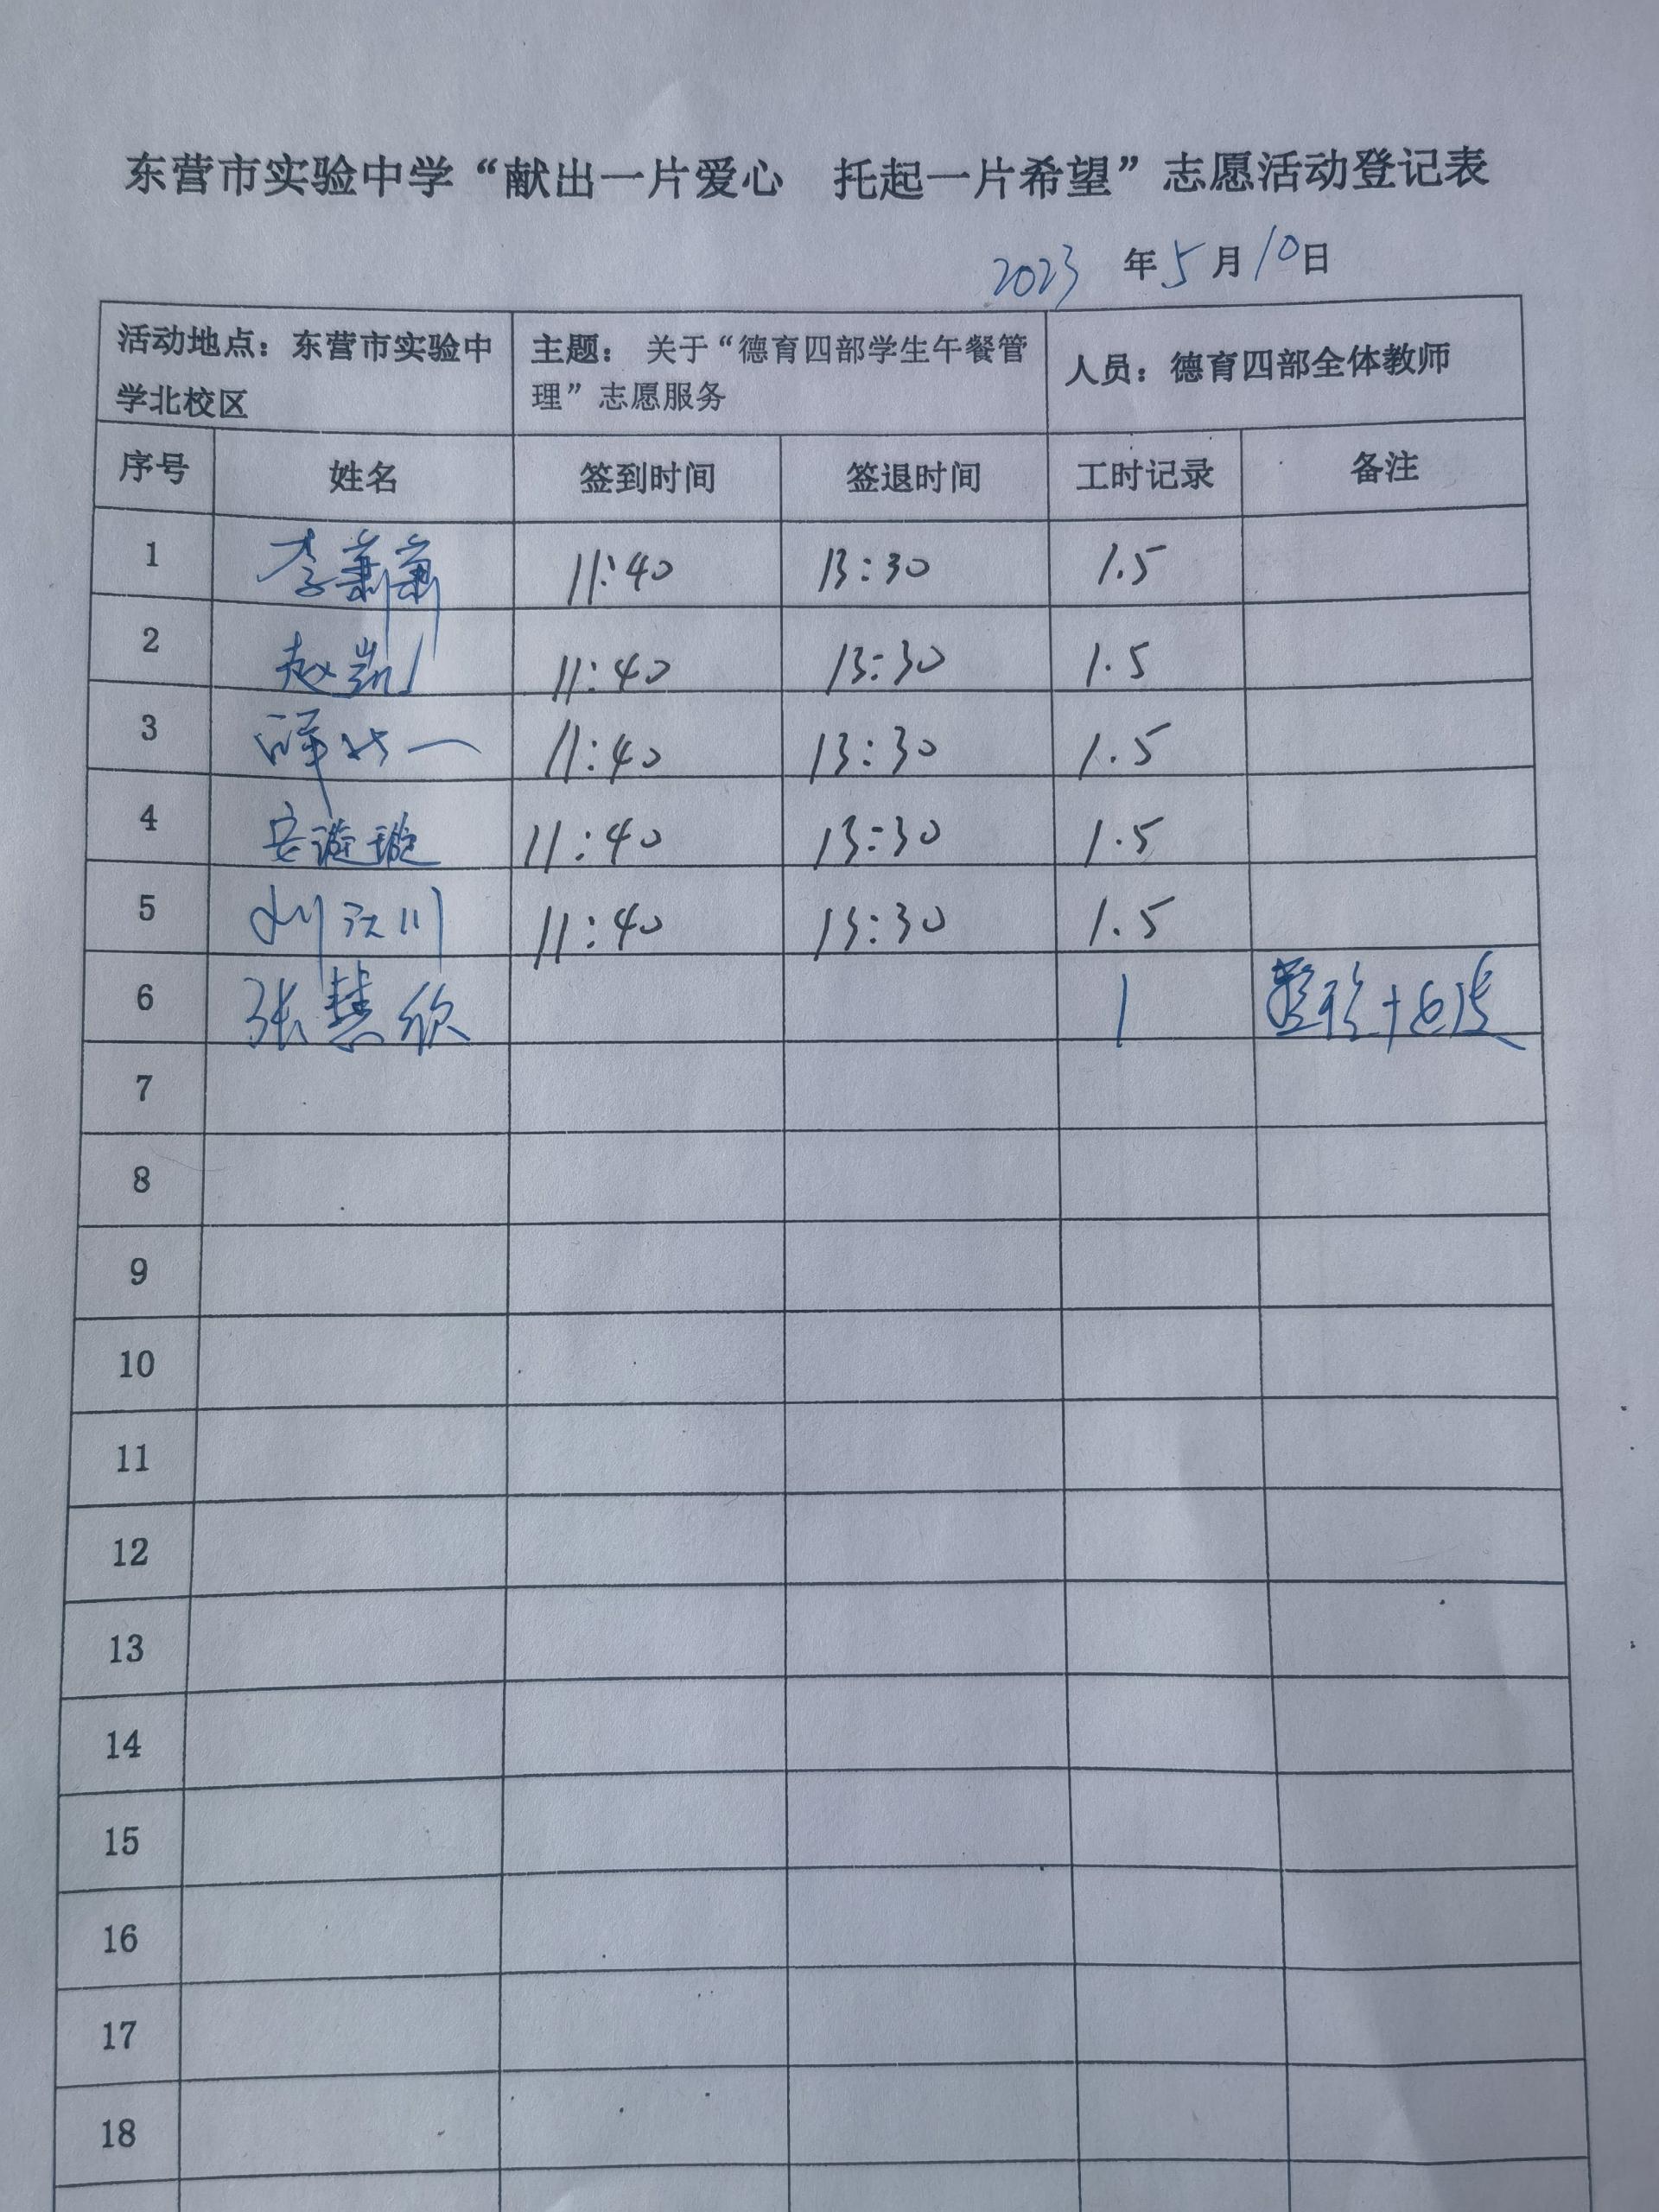 东营市实验中学“献出一片爱心 托起一片希望”志愿活动登记表
2023 年 5 月 10 日
活动地点：东营市实验中学北校区 主题：关于“德育四部学生午餐管理”志愿服务 人员：德育四部全体教师
序号 姓名 签到时间 签退时间 工时记录 备注
1 李萧萧 11:40 13:30 1.5
2 赵凯 11:40 13:30 1.5
3 薛 一 11:40 13:30 1.5
4 安璇璇 11:40 13:30 1.5
5 刘江川 11:40 13:30 1.5
6 张慧欣 1
7
8
9
10
11
12
13
14
15
16
17
18